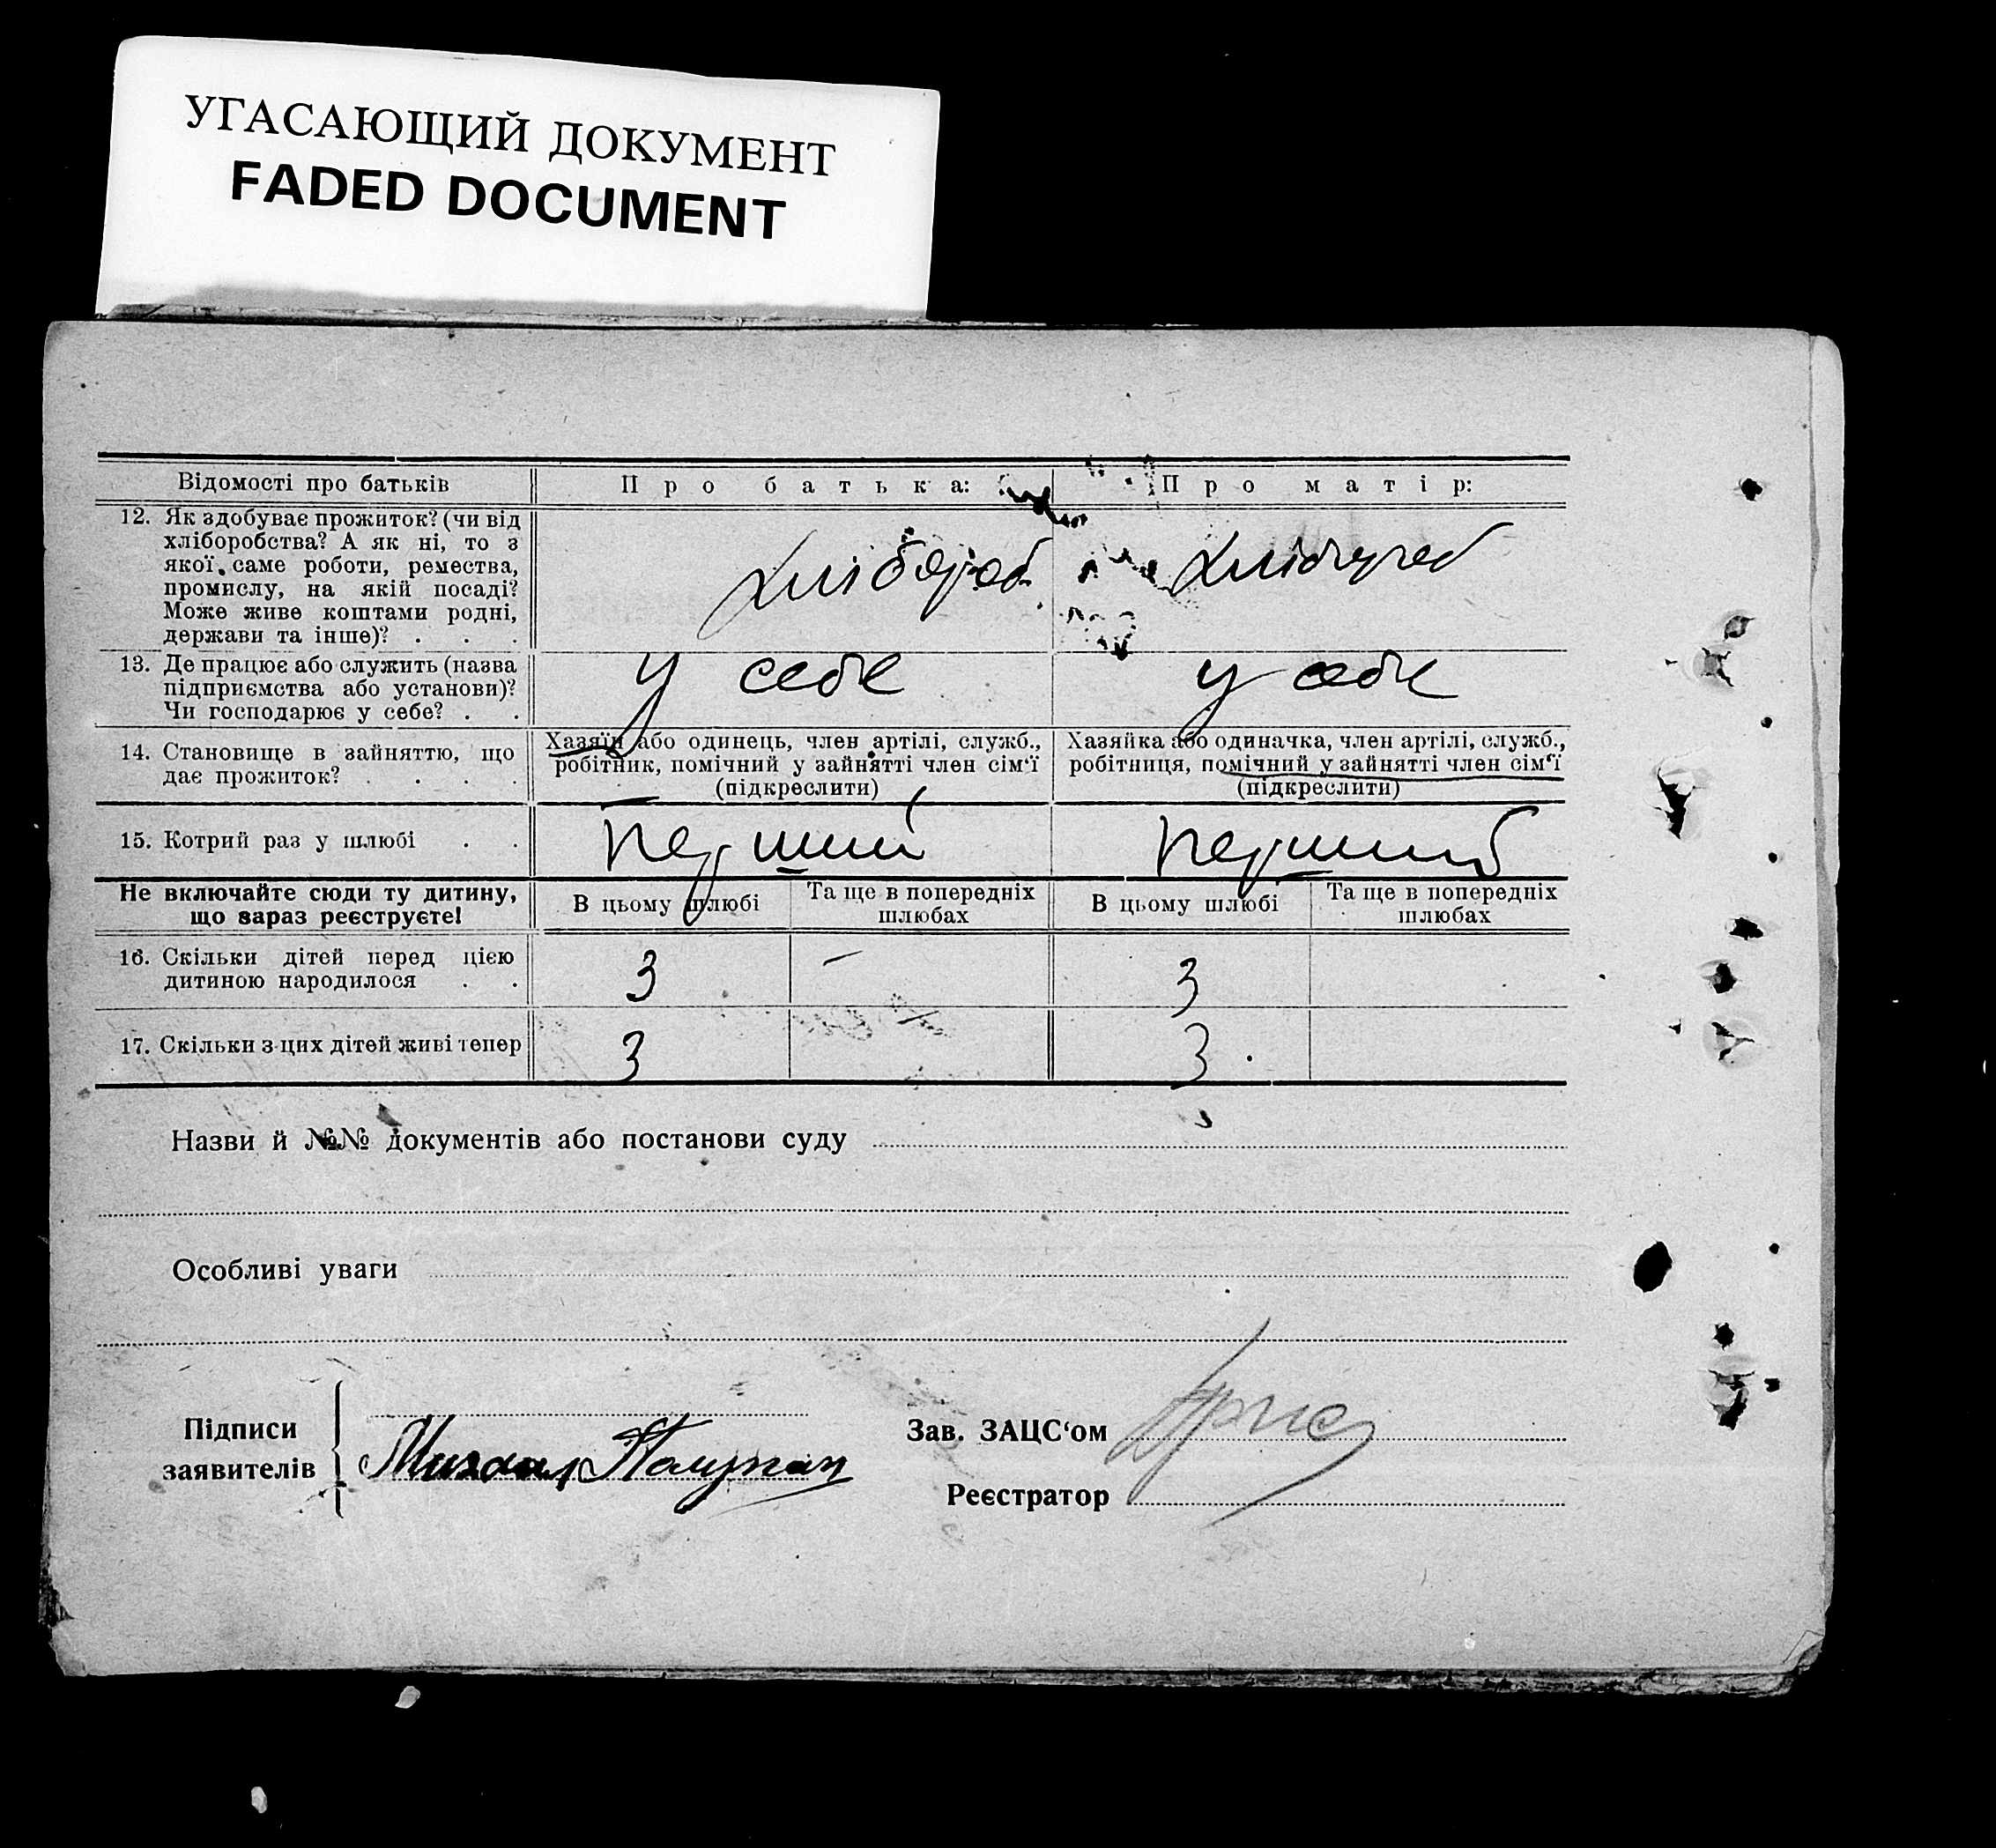 УГАСАЮЩИЙ ДОКУМЕНТ
FADED DOCUMENT
Відомості про батьків
Про батька:
Про матір:
12. Як здобуває прожиток? (чи від
хліборобства? А як ні, то з
якої саме роботи, ремества,
промислу, на якій посаді?
Може живе коштами родні,
держави та інше)? . . .
хлібороб
хлібороб
13. Де працює або служить (назва
підприємства або установи)?
Чи господарює у себе? . .
у себе
у себе
14. Становище в зайняттю, що
дає прожиток? . . . .
Хазяїн або одинець, член артілі, служб.,
робітник, помічний у зайнятті член сім'ї
(підкреслити)
Хазяйка або одиначка, член артілі, служб.,
робітниця, помічний у зайнятті член сім'ї
(підкреслити)
15. Котрий раз у шлюбі . .
перший
перший
Не включайте сюди ту дитину,
що зараз реєструєте!
В цьому шлюбі
Та ще в попередніх
шлюбах
В цьому шлюбі
Та ще в попередніх
шлюбах
16. Скільки дітей перед цією
дитиною народилося . .
3
—
3
17. Скільки з цих дітей живі тепер
3
3
Назви й №№ документів або постанови суду
Особливі уваги
Підписи
заявителів
Михаил
Зав. ЗАЦС'ом
Реєстратор